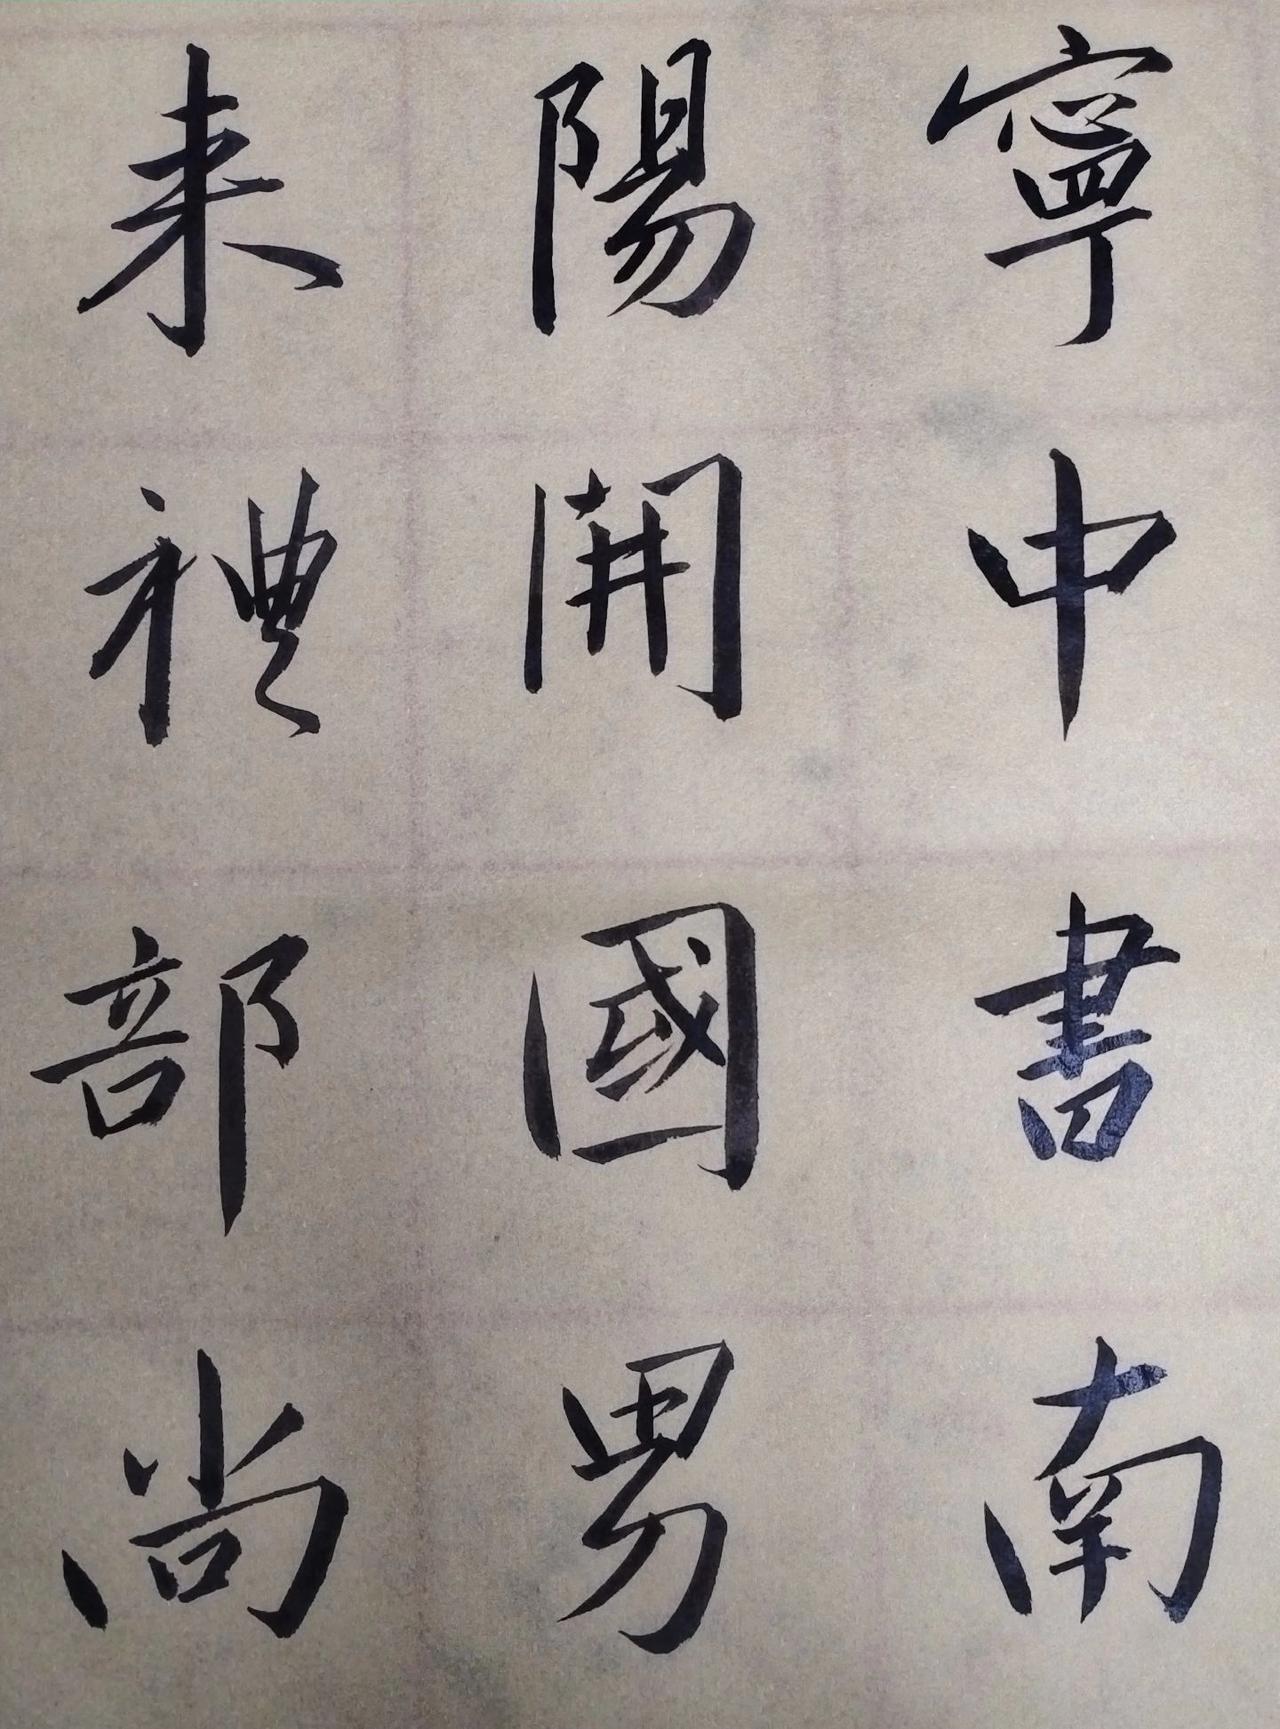 寧中書南
陽開國男
来禮部尚